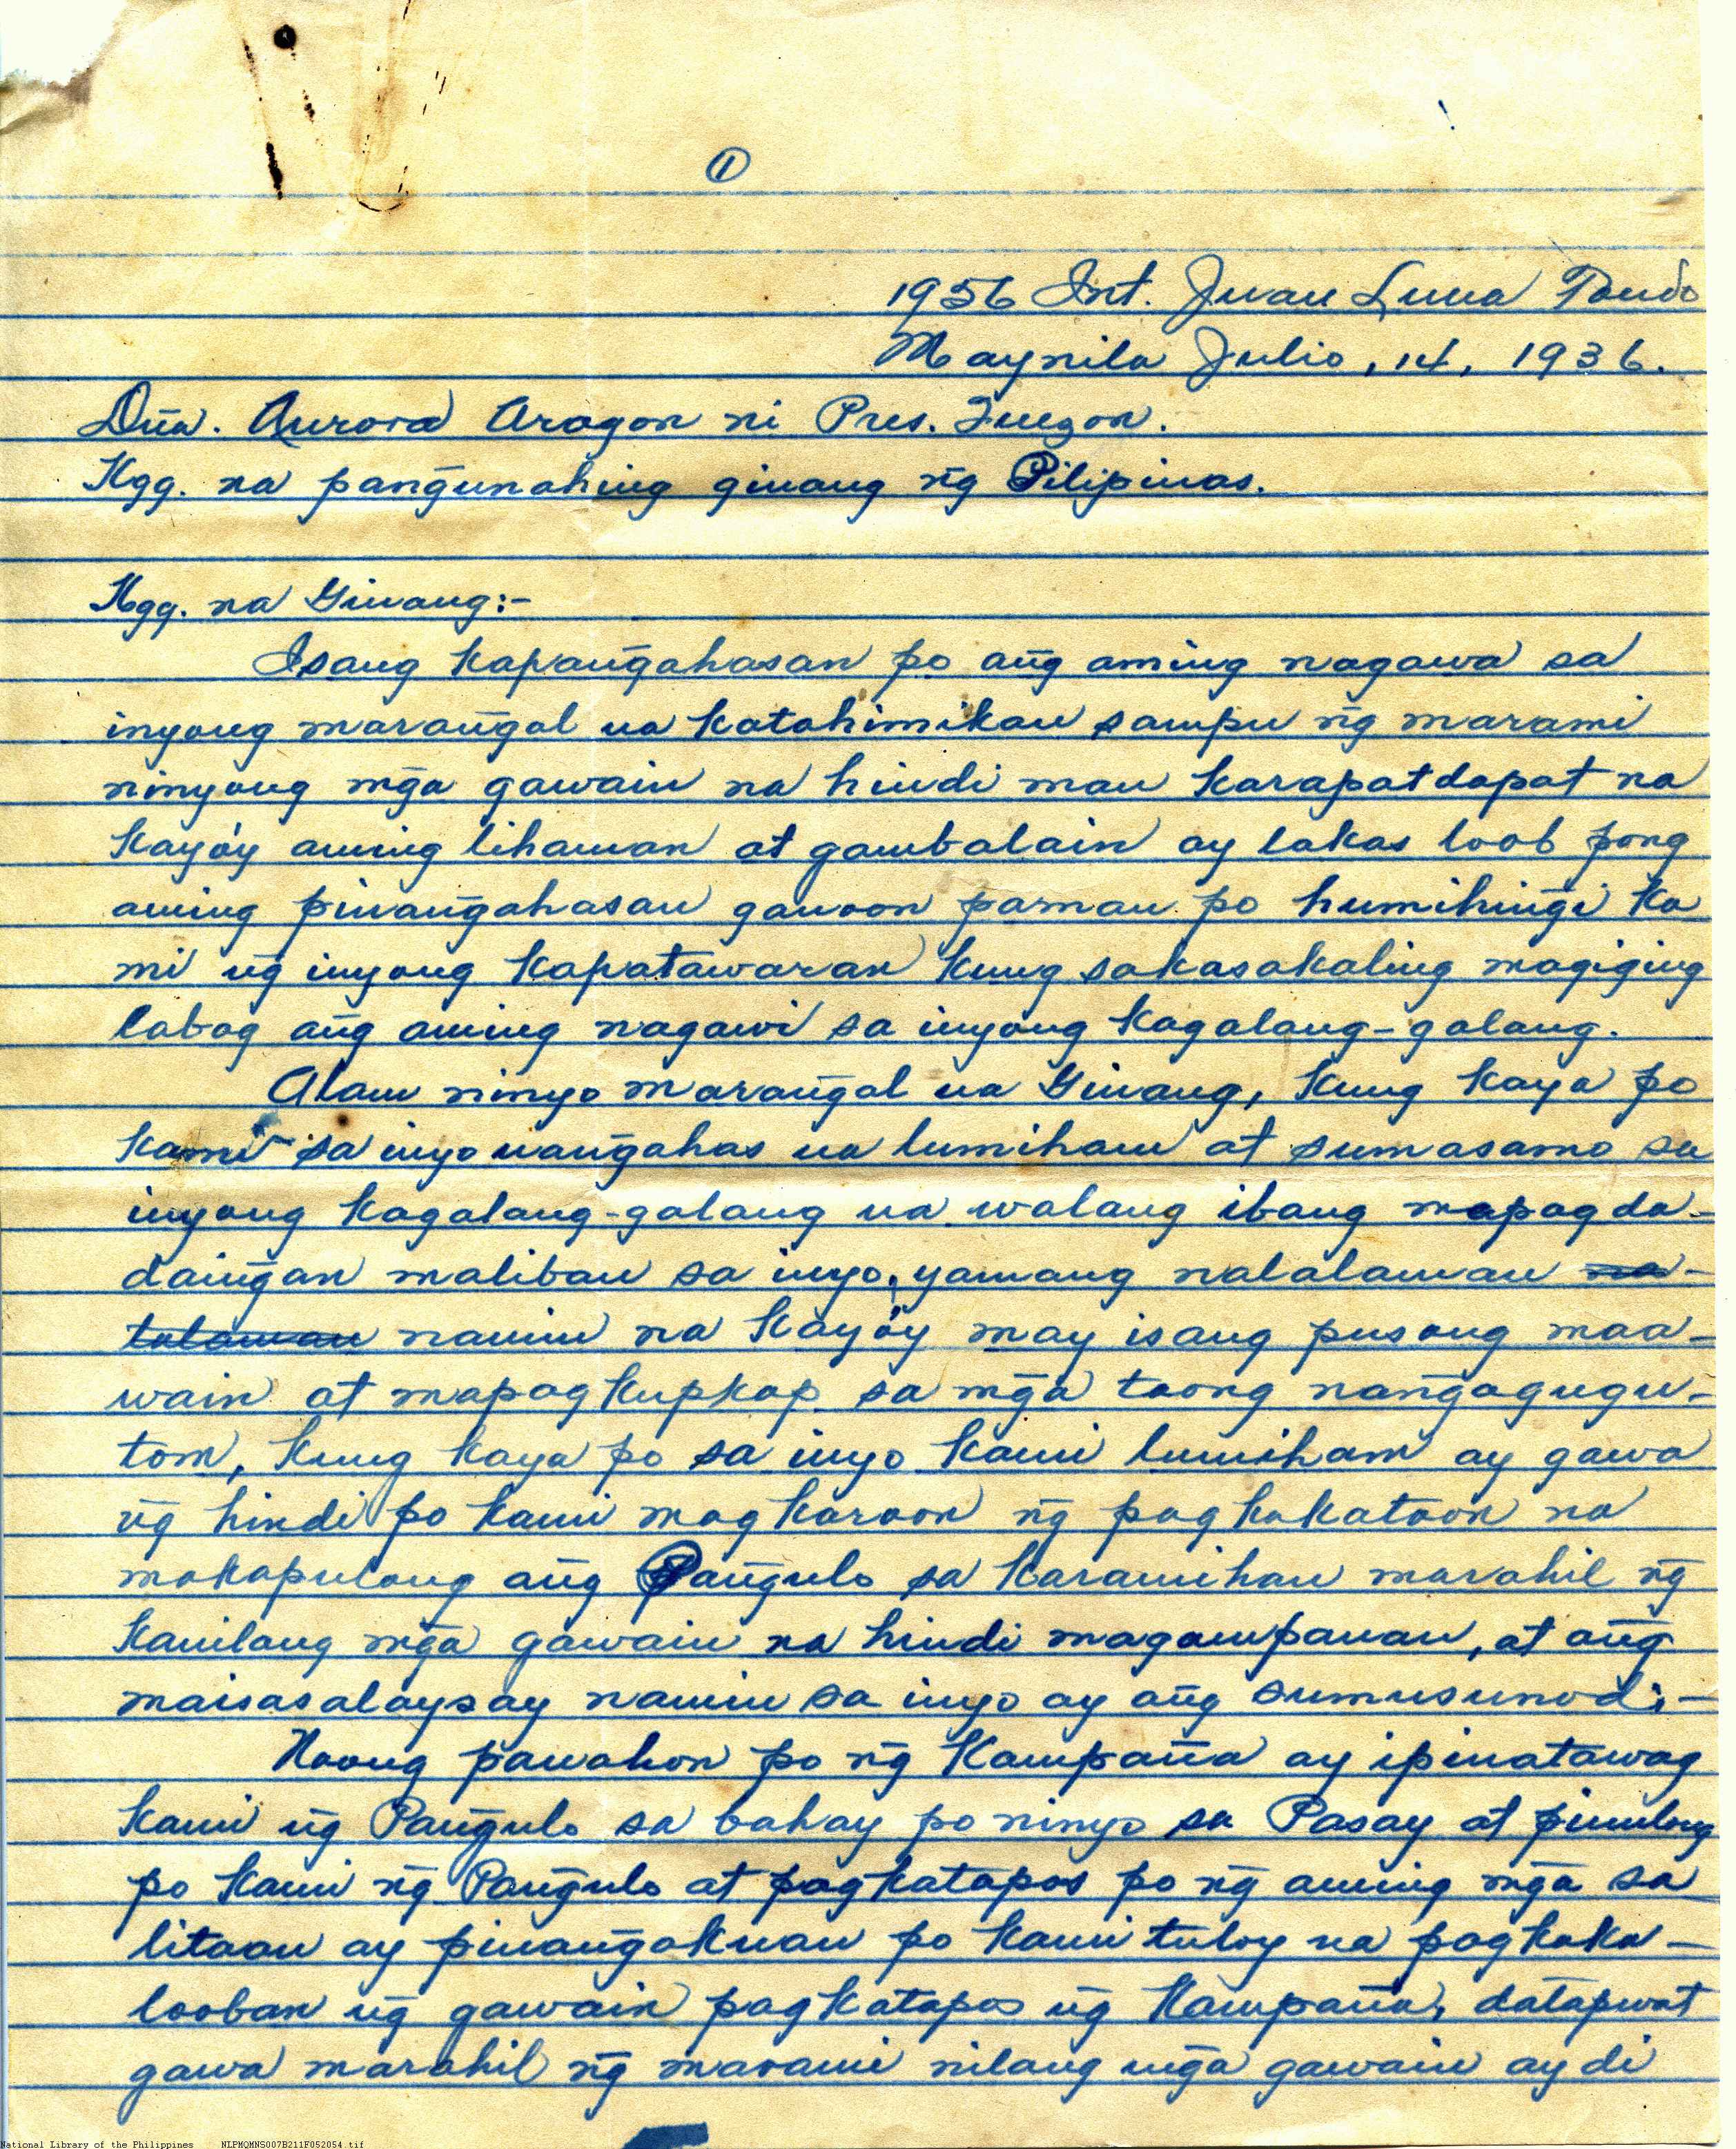 ①
1956 Int. Juan Luna Tondo
Maynila Julio, 14, 1936.
Dña. Aurora Aragon ni Pres. Quezon.
Kgg. na pan̄gunahing ginang n̄g Pilipinas.
Kgg. na Ginang:-
Isang kapan̄gahasan po an̄g aming nagawa sa
inyong maran̄gal na katahimikan sampu n̄g marami
ninyong mg̃a gawain na hindi man karapatdapat na
kayo'y aming lihaman at gambalain ay lakas loob pong
aming pinan̄gahasan ganoon paman po humihin̄gi ka
mi n̄g inyong kapatawaran kung sakasakaling magiging
labag an̄g aming nagawi sa inyong kagalang-galang.
Alam ninyo maran̄gal na Ginang, kung kaya po
kami sa inyo nan̄gahas na lumiham at sumasamo sa
inyong kagalang-galang na walang ibang mapagda-
dain̄gan maliban sa inyo, yamang nalalaman na-
talaman namin na kayo'y may isang pusong maa-
wain at mapagkupkop sa mg̃a taong nan̄gagugu-
tom, kung kaya po sa inyo kami lumiham ay gawa
n̄g hindi po kami magkaroon n̄g pagkakataon na
makapulong an̄g Pan̄gulo sa karamihan marahil n̄g
kanilang mg̃a gawain na hindi magampanan, at an̄g
maisasalaysay namin sa inyo ay an̄g sumusunod:-
Noong pawahon po n̄g Kampaña ay ipinatawag
kami n̄g Pan̄gulo sa bahay po ninyo sa Pasay at pinulong
po kami n̄g Pan̄gulo at pagkatapos po n̄g aming mg̃a sa
litaan ay pinan̄gakuan po kami tuloy na pagkaka-
looban n̄g gawain pagkatapos n̄g Kampaña, datapwat
gawa marahil n̄g marami nilang mg̃a gawain ay di
National Library of the Philippines NLPMQMNS007B211F052054.tif